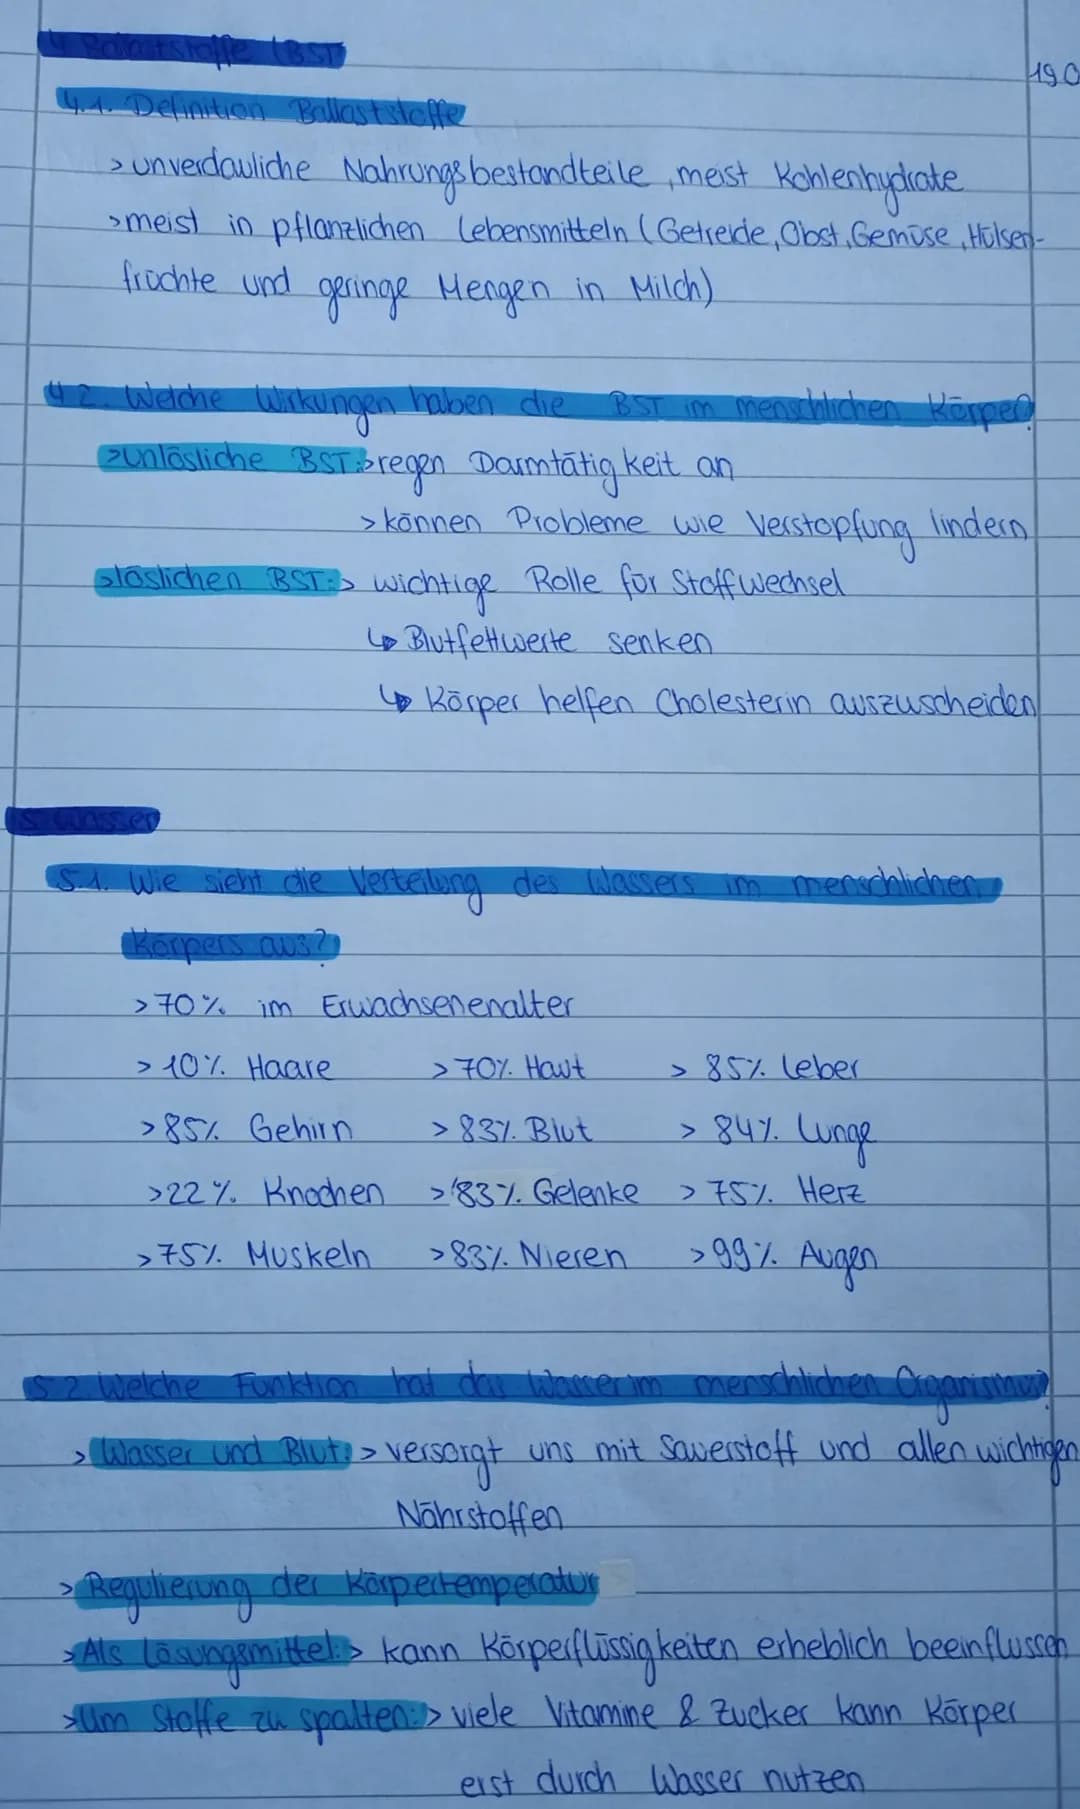 4 Ballaststoffe (BST)
19.0
4.1. Definition Ballaststoffe
> unverdauliche Nahrungsbestandteile, meist Kohlenhydrate
> meist in pflanzlichen Lebensmitteln (Getreide, Obst, Gemüse, Hülsen-
früchte und geringe Mengen in Milch)
4.2. Welche Wirkungen haben die BST im menschlichen Körper?
> unlösliche BST: > regen Darmtätigkeit an
> können Probleme wie Verstopfung lindern
> löslichen BST: > wichtige Rolle für Stoffwechsel
↳ Blutfettwerte senken
↳ Körper helfen Cholesterin auszuscheiden
5. Wasser
5.1. Wie sieht die Verteilung des Wassers im menschlichen
Körpers aus?
> 70% im Erwachsenenalter
> 10% Haare > 70% Haut > 85% Leber
> 85% Gehirn > 83% Blut > 84% Lunge
> 22% Knochen > 83% Gelenke > 75% Herz
> 75% Muskeln > 83% Nieren > 99% Augen
5.2. Welche Funktion hat das Wasser im menschlichen Organismus?
> Wasser und Blut: > versorgt uns mit Sauerstoff und allen wichtigen
Nährstoffen
> Regulierung der Körpertemperatur
> Als Lösungsmittel: > kann Körperflüssigkeiten erheblich beeinflussen
> Um Stoffe zu spalten: > viele Vitamine & Zucker kann Körper
erst durch Wasser nutzen